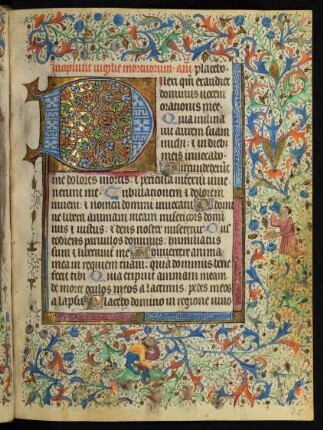 Incipiunt vigilie mortuorum. an Placebo
lexi qm exaudiet
dominus vocem
orationis mee
Quia inclina
vit aurem suam
michi et in dieb
meis invocabo
Circumdederunt
me dolores mortis et pericula inferni inve
nerunt me Tribulationem et dolorem
inveni et nomen domini invocavi O domi
ne libera animam meam misericors domi
nus et iustus et deus noster miseretur Cus
todiens parvulos dominus humiliatus
sum et liberavit me Convertere anima
mea in requiem tuam quia dominus bene
fecit tibi Quia eripuit animam meam
de morte oculos meos a lacrimis pedes meos
a lapsu Placebo domino in regione vivo